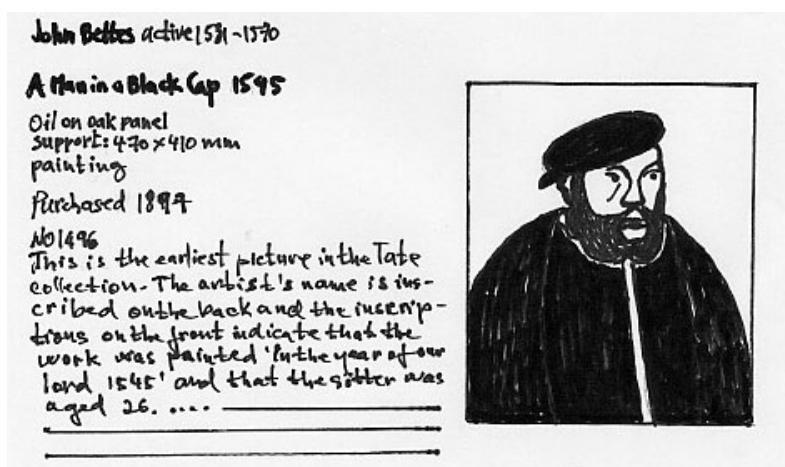 John Bettes active 1531-1570
A Man in a Black Cap 1545
Oil on oak panel
support: 470 x 410 mm
painting
Purchased 1897
NO1496
This is the earliest picture in the Tate
collection. The artist's name is ins-
cribed on the back and the inscrip-
tions on the front indicate that the
work was painted 'In the year of our
lord 1545' and that the sitter was
aged 26. ....